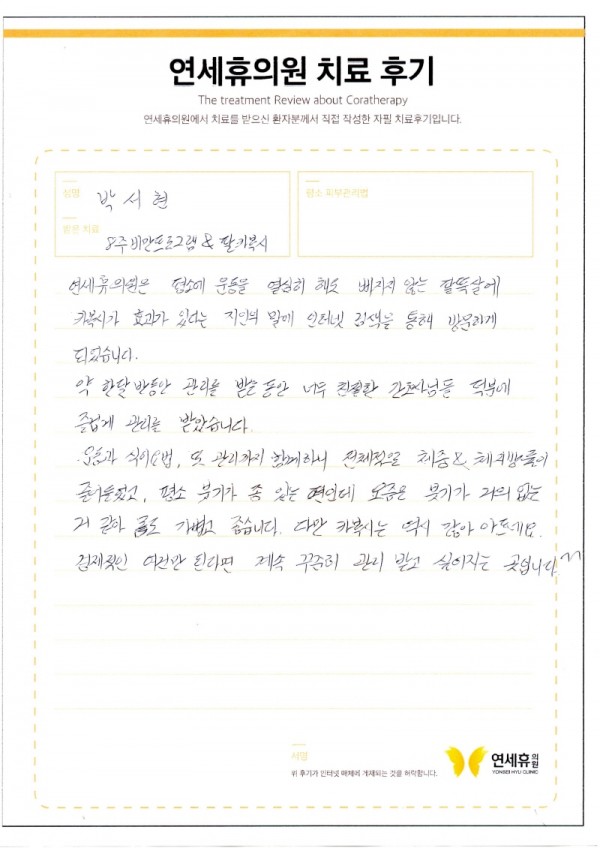 연세휴의원 치료 후기
The treatment Review about Coratherapy
연세휴의원에서 치료를 받으신 환자분께서 직접 작성한 자필 치료후기입니다.
성명 박서현
평소 피부관리법
받은 치료
8주비만프로그램 & 팔카복시
연세휴의원은 평소에 운동을 열심히 해도 빠지지 않는 팔뚝살에
카복시가 효과가 있다는 지인의 말에 인터넷 검색을 통해 방문하게
되었습니다.
약 한달 반동안 관리를 받는 동안 너무 친절한 간호사님들 덕분에
즐겁게 관리를 받았습니다.
운동과 식이요법, 또 관리까지 함께하니 전체적으로 체중 & 체지방률이
줄어들었고, 평소 붓기가 좀 있는 편인데 요즘은 붓기가 거의 없는
거 같아 몸도 가볍고 좋습니다. 다만 카복시는 역시 많이 아프네요.
경제적인 여건만 된다면 계속 꾸준히 관리 받고 싶어지는 곳입니다^^
서명
위 후기가 인터넷 매체에 게재되는 것을 허락합니다.
연세휴의원
YONSEI HYU CLINIC